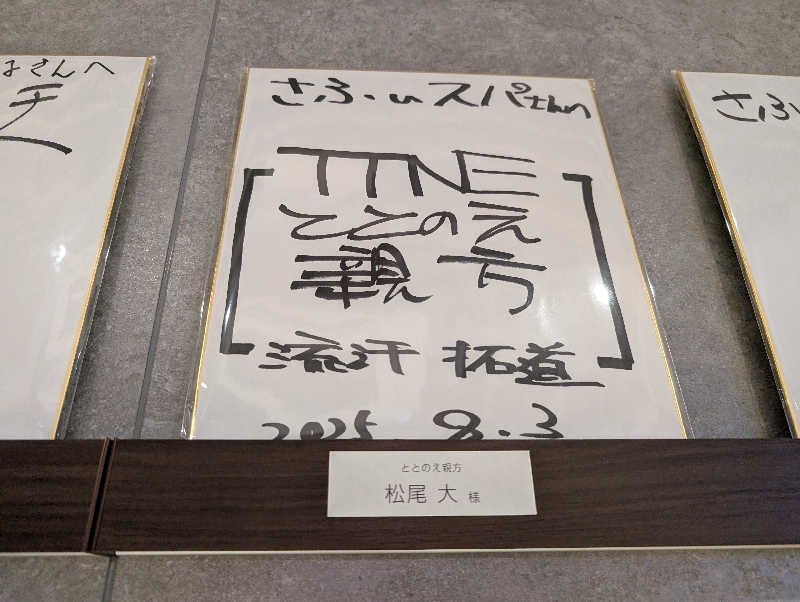 さんへ
さふぃスパさんへ
TTNE
ととのえ
親方
流汗 拓道
2025 8.3
さふぃ
ととのえ親方
松尾 大 様